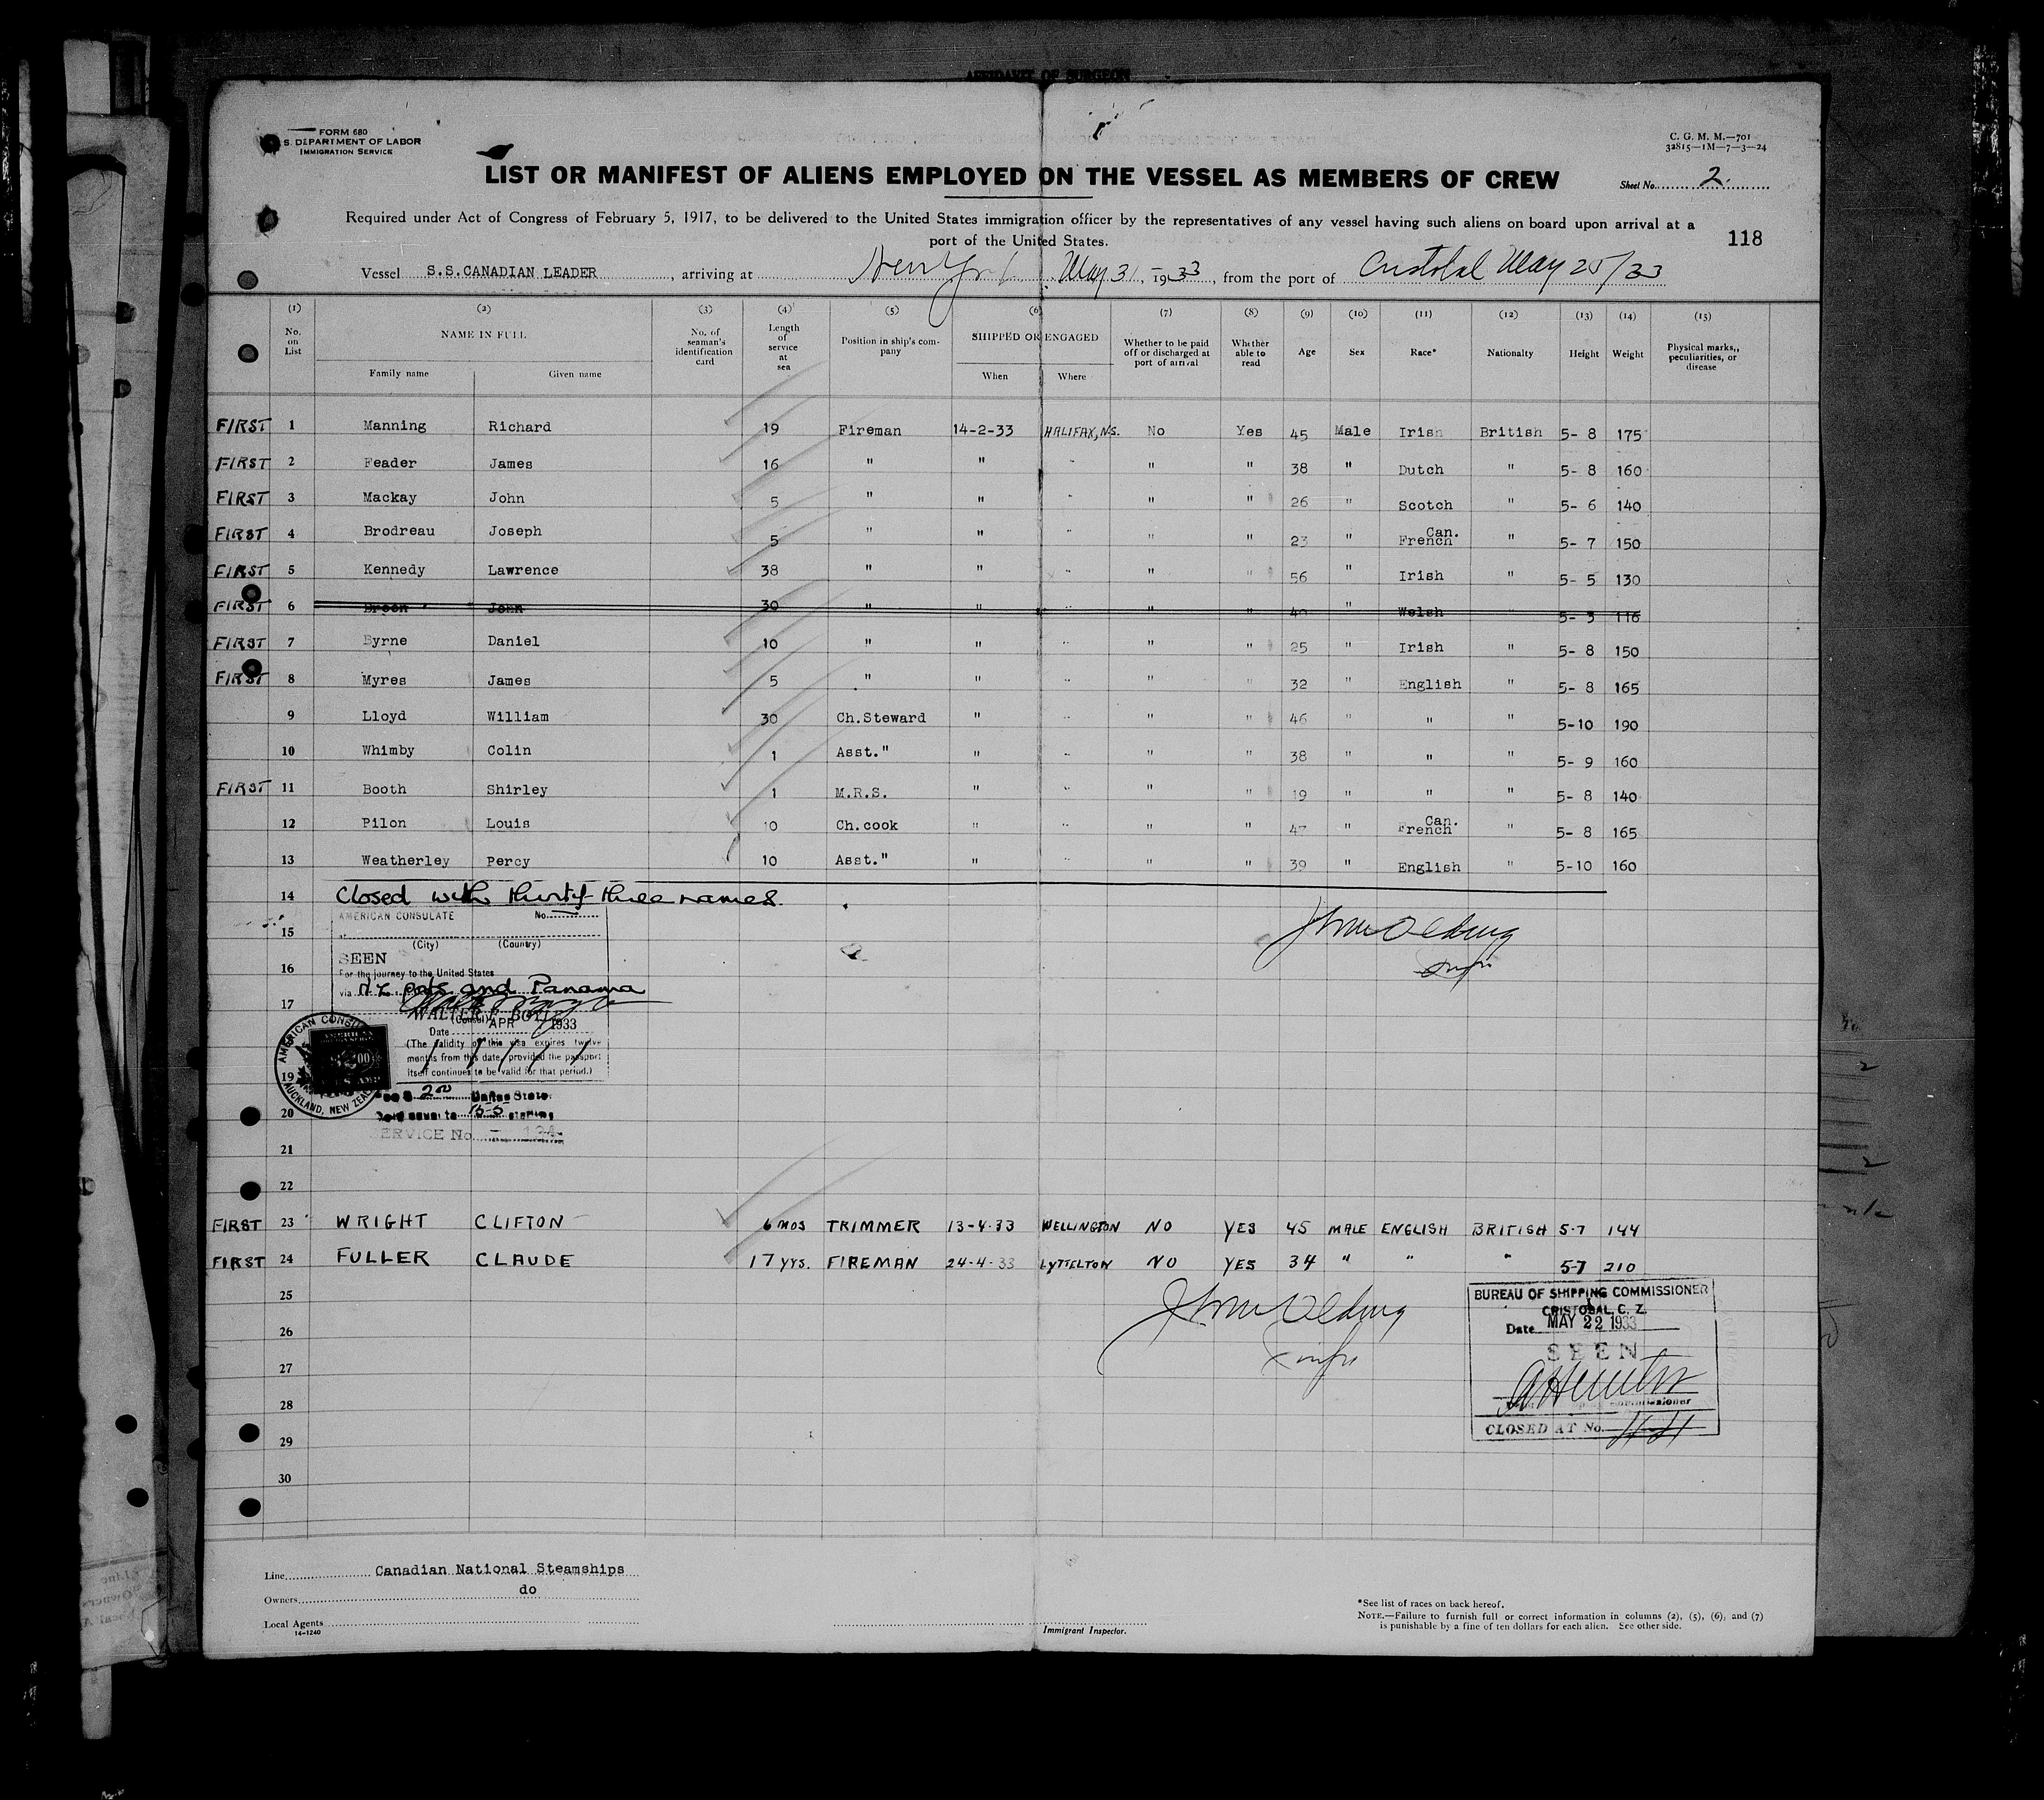 AFFIDAVIT OF SURGEON
FORM 680
S. DEPARTMENT OF LABOR
IMMIGRATION SERVICE
C. G. M. M.—701
32815—1M—7—3—24
LIST OR MANIFEST OF ALIENS EMPLOYED ON THE VESSEL AS MEMBERS OF CREW
Sheet No. 2.
Required under Act of Congress of February 5, 1917, to be delivered to the United States immigration officer by the representatives of any vessel having such aliens on board upon arrival at a
port of the United States.
118
Vessel S.S.CANADIAN LEADER, arriving at New York May 31, 1933, from the port of Cristobal May 25/33
(1) (2) (3) (4) (5) (6) (7) (8) (9) (10) (11) (12) (13) (14) (15)
No. on List NAME IN FULL Family name Given name No. of seaman's identification card Length of service at sea Position in ship's company SHIPPED OR ENGAGED When Where Whether to be paid off or discharged at port of arrival Whether able to read Age Sex Race* Nationalty Height Weight Physical marks, peculiarities, or disease
FIRST 1 Manning Richard 19 Fireman 14-2-33 HALIFAX, N.S. No Yes 45 Male Irish British 5- 8 175
FIRST 2 Feader James 16 " " " " " 38 " Dutch " 5- 8 160
FIRST 3 Mackay John 5 " " " " " 26 " Scotch " 5- 6 140
FIRST 4 Brodreau Joseph 5 " " " " " 23 " Can. French " 5- 7 150
FIRST 5 Kennedy Lawrence 38 " " " " " 56 " Irish " 5- 5 130
FIRST 6 John 30 " " " " " 40 " Welsh " 5- 3 116
FIRST 7 Byrne Daniel 10 " " " " " 25 " Irish " 5- 8 150
FIRST 8 Myres James 5 " " " " " 32 " English " 5- 8 165
9 Lloyd William 30 Ch.Steward " " " " 46 " " " 5-10 190
10 Whimby Colin 1 Asst." " " " " 38 " " " 5- 9 160
FIRST 11 Booth Shirley 1 M.R.S. " " " " 19 " " " 5- 8 140
12 Pilon Louis 10 Ch.cook " " " " 47 " Can. French " 5- 8 165
13 Weatherley Percy 10 Asst." " " " " 39 " English " 5-10 160
14 Closed with thirty three names.
AMERICAN CONSULATE No.
15
(City) (Country)
SEEN
16 For the journey to the United States
via N Z ports and Panama
17
WALTER F. BOYLE
(Consul)
Date APR 1933
(The validity of this visa expires twelve
months from this date, provided the passport
19 itself continues to be valid for that period.)
AMERICAN CONSULATE AUCKLAND, NEW ZEALAND
Fee $ 2.00 United States
20 Gold equal to 15-5 sterling
SERVICE No.
21
22
FIRST 23 WRIGHT CLIFTON 6 MOS TRIMMER 13-4-33 WELLINGTON NO YES 45 MALE ENGLISH BRITISH 5-7 144
FIRST 24 FULLER CLAUDE 17 YRS. FIREMAN 24-4-33 LYTTELTON NO YES 34 " " " 5-7 210
25
26
27
28
29
30
BUREAU OF SHIPPING COMMISSIONER
CRISTOBAL, C. Z.
Date MAY 22 1933
SEEN
Commissioner
CLOSED AT No.
Line Canadian National Steamships
Owners do
Local Agents
14-1240
Immigrant Inspector.
*See list of races on back hereof.
NOTE.—Failure to furnish full or correct information in columns (2), (5), (6), and (7)
is punishable by a fine of ten dollars for each alien. See other side.